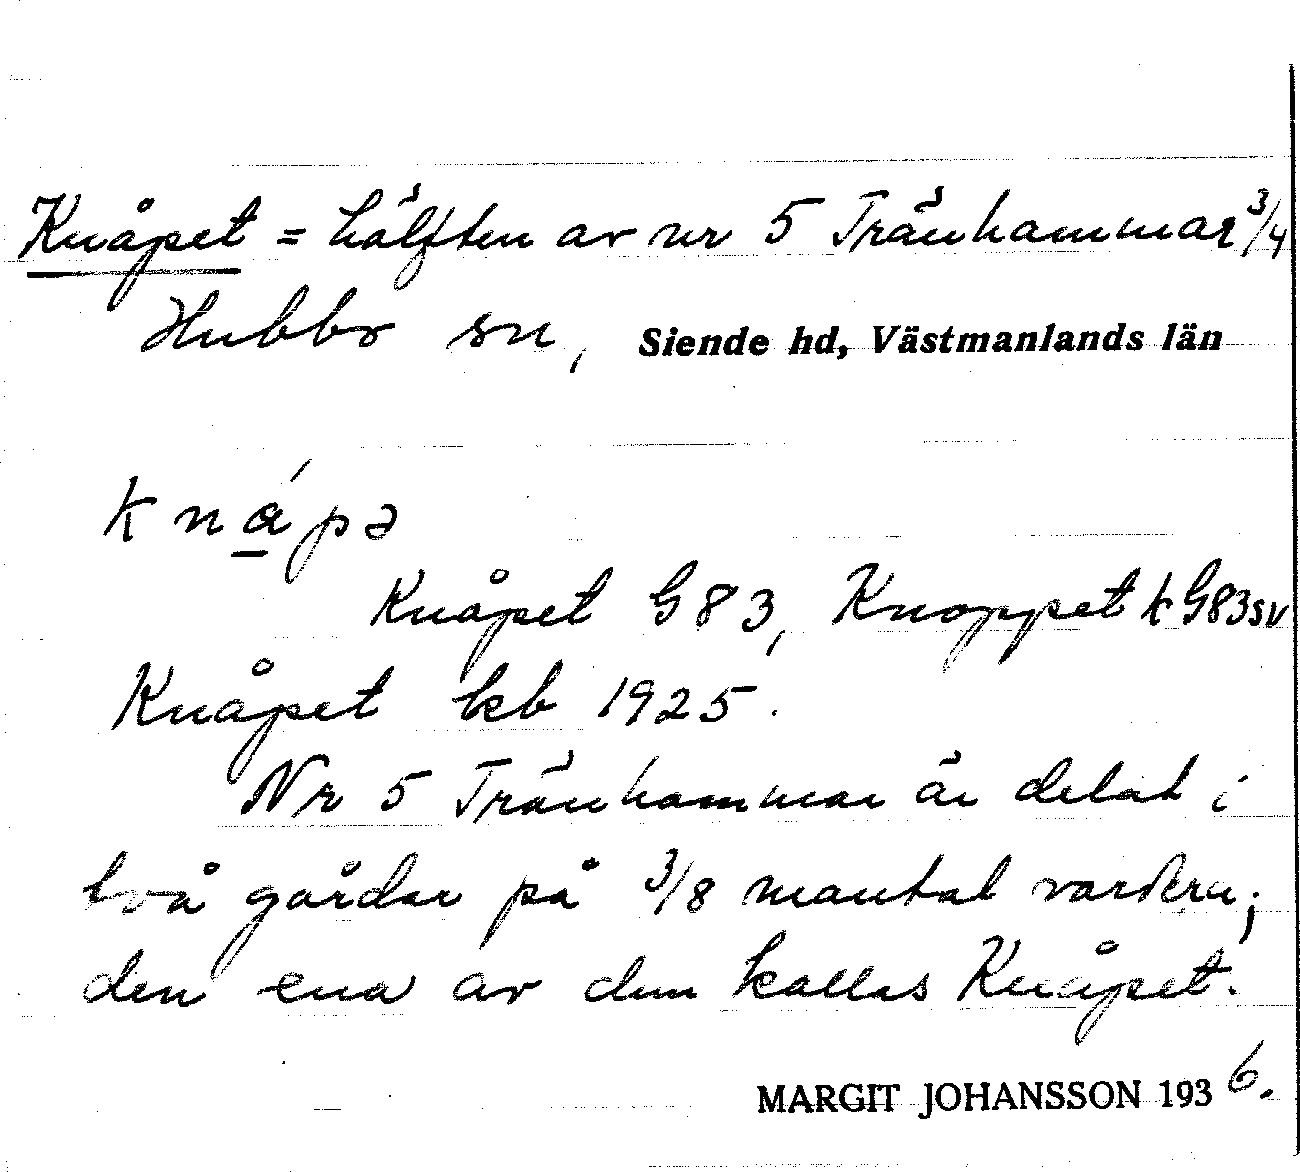 Knåpet = hälften av nr 5 Tränhammar 3/4
Hubbo sn, Siende hd, Västmanlands län
knápə
Knåpet G 83, Knoppet k G83sv
Knåpet kb 1925.
Nr 5 Tränhammar är delat i
två gårdar på 3/8 mantal vardera;
den ena av dem kallas Knåpet.
MARGIT JOHANSSON 1936.